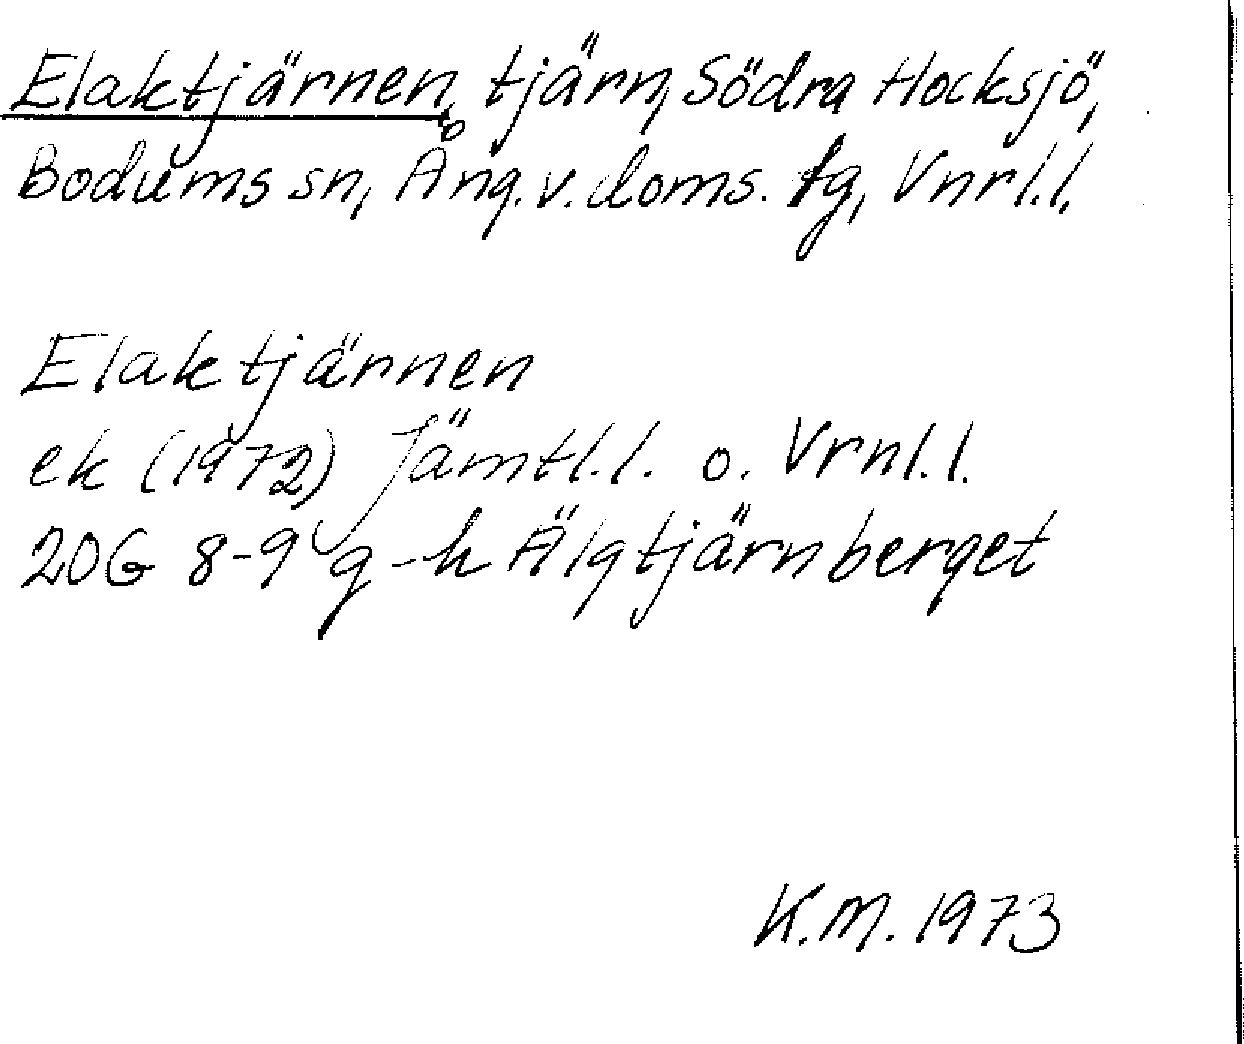 Elaktjärnen, tjärn, Södra Hocksjö,
Bodums sn, Ång. v. doms. tg, Vnrl.l.
Elaktjärnen
ek (1972) Jämtl.l. o. Vrnl.l.
20G 8-9 g-h Älgtjärnberget
K.M. 1973